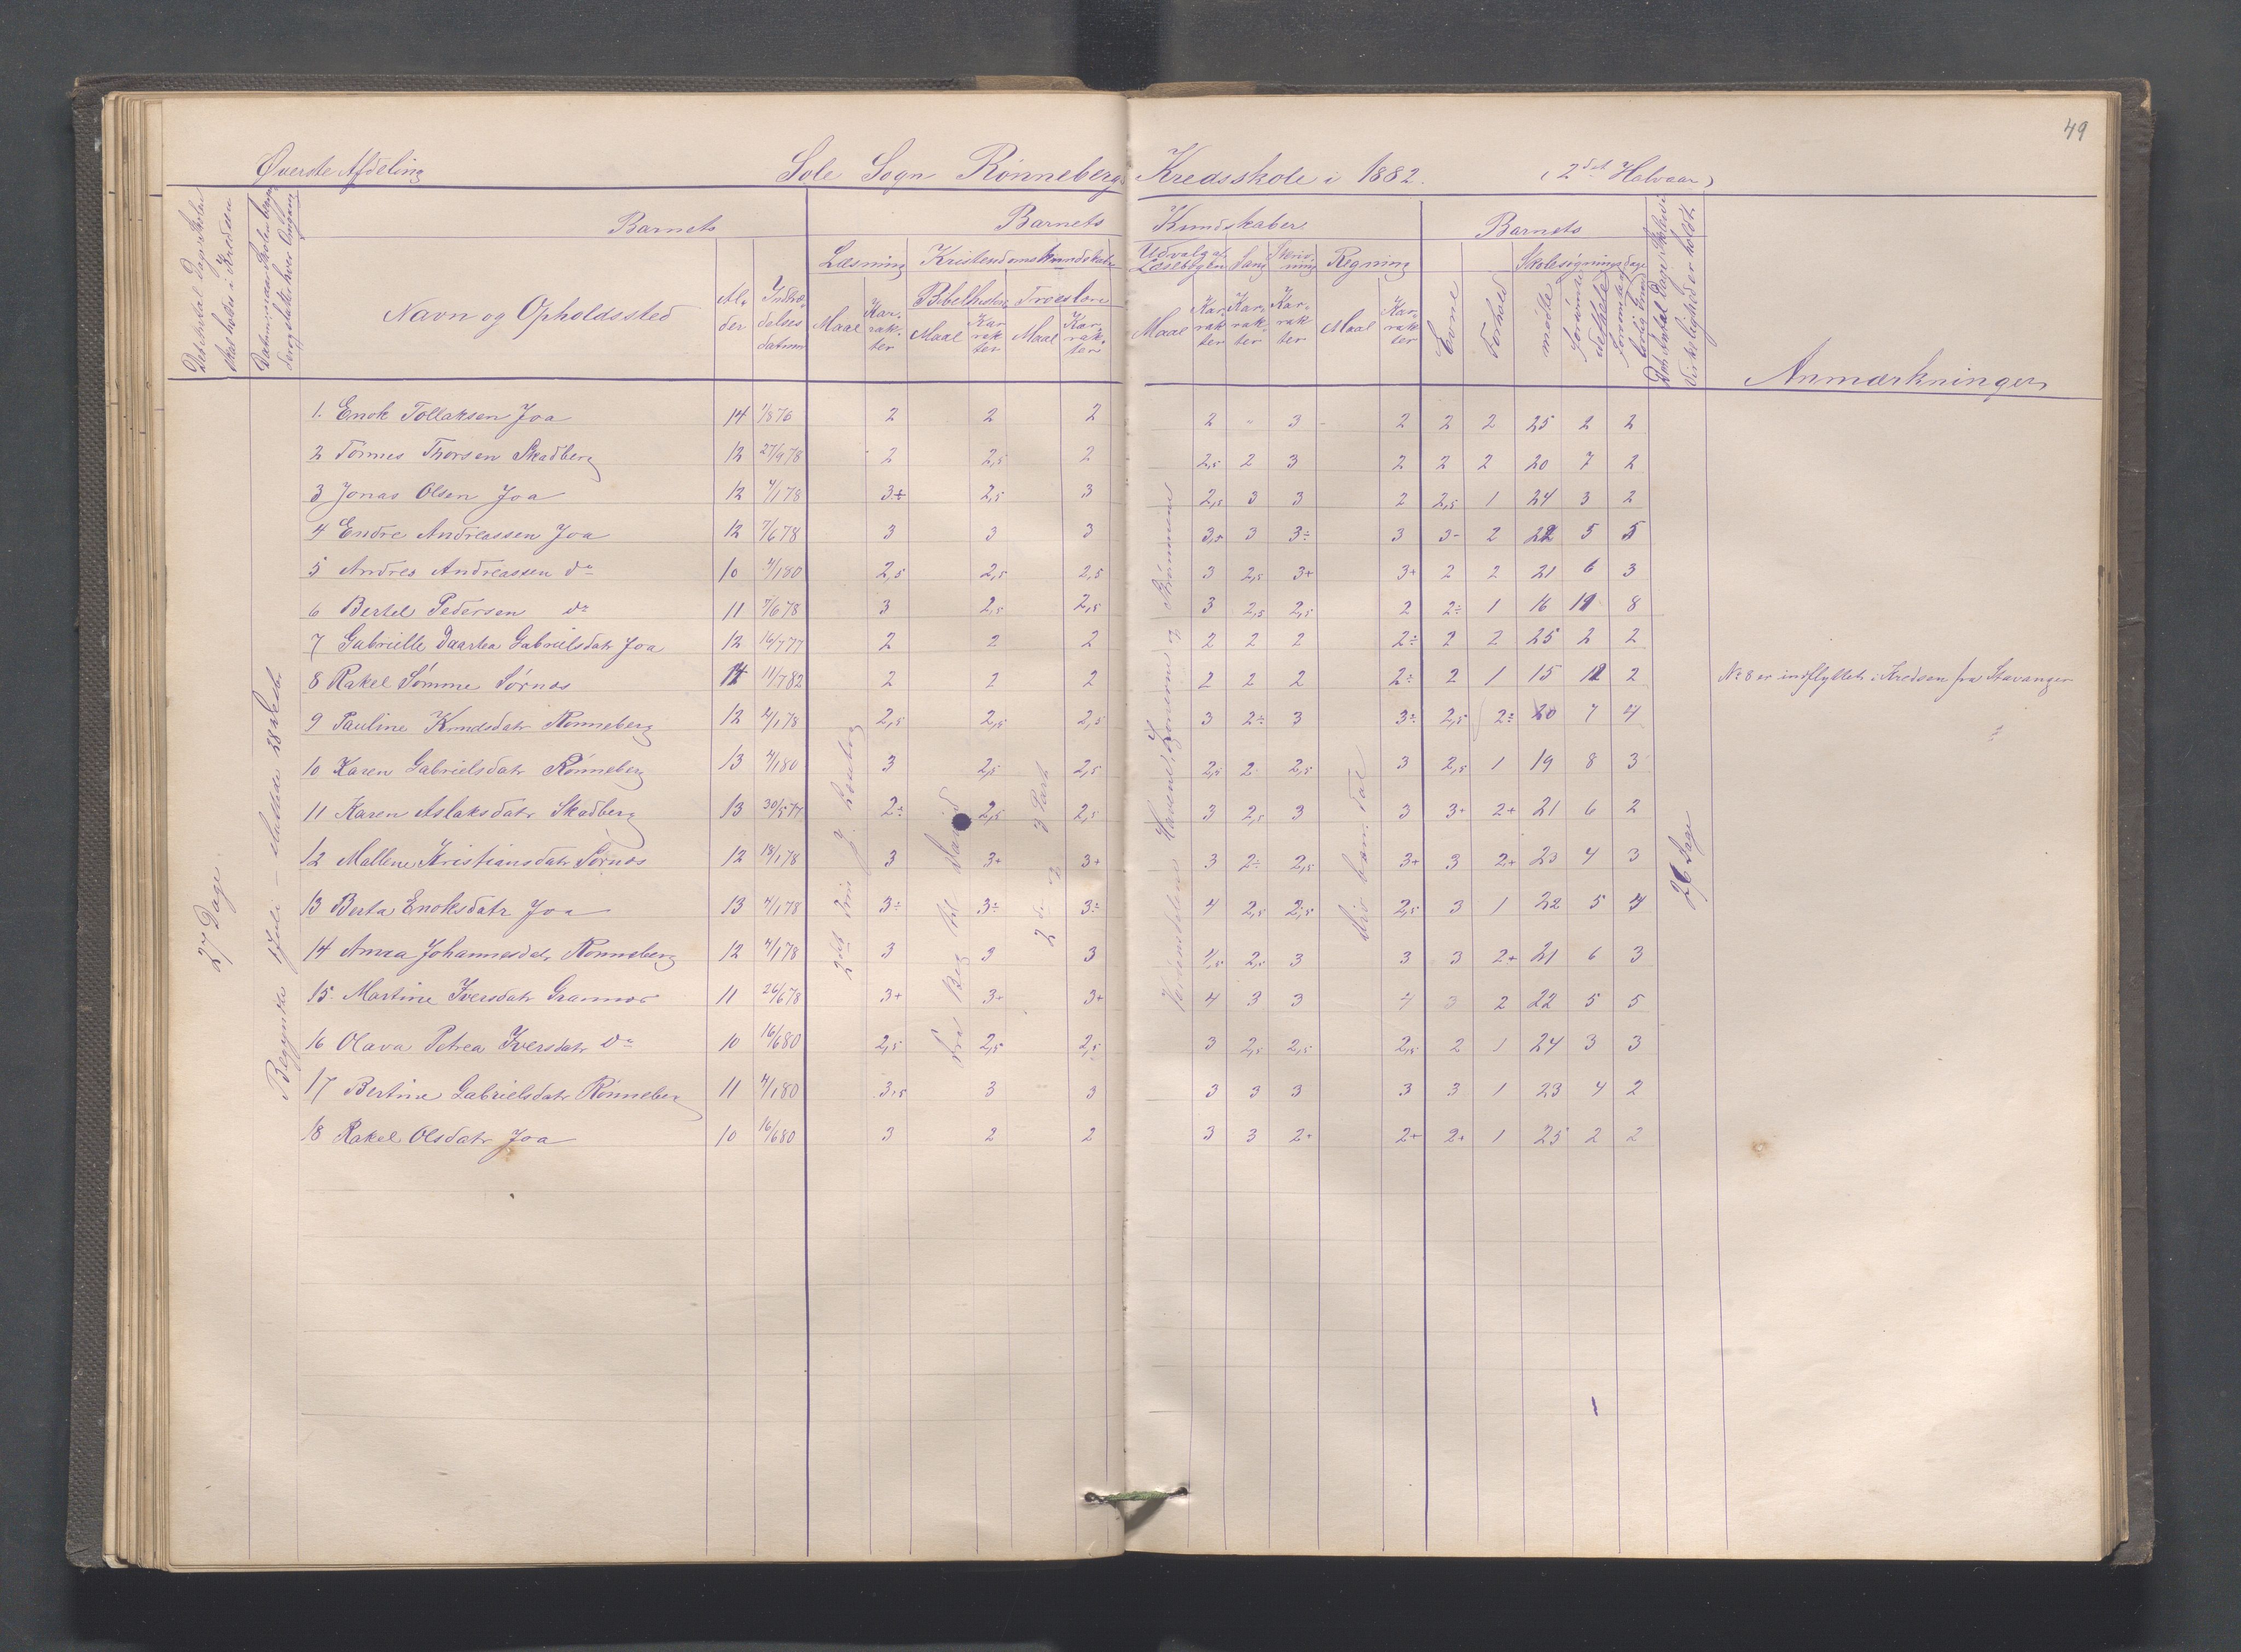 49
Øverste Afdeling Sole Sogn Rønnebergs Kredsskole i 1882. (2det Halvaar)
Barnets Barnets Kundskaber Barnets
Læsning Kristendomskundskab Udvalg af Læsebogen Sang Skrivning Regning Skolesøgningsdage
Det Antal Dage Skolen skal holdes i Kredsen
Navn og Opholdssted Alder Indtrædelsesdatum Maal Karrakter Bibelhistorie Maal Karrakter Troeslære Maal Karrakter Maal Karrakter Karrakter Karrakter Maal Karrakter Evne Forhold mødte forsømte det hele Anmærkninger
1. Enok Tollaksen Joa 14 1/8 76 2 2 2 2 " 3 2 2 2 25 2 2
2 Tønnes Thorsen Skadberg 12 27/9 78 2 2,5 2 2,5 2 3 2 2 2 20 7 2
3 Jonas Olsen Joa 12 4/1 78 3+ 2,5 3 2,5 3 3 2 2,5 1 24 3 2
4 Endre Andreassen Joa 12 7/6 78 3 3 3 3,5 3 3÷ 3 3- 2 22 5 5
5 Andres Andreassen do 10 4/1 80 2,5 2,5 2,5 3 2,5 3+ 3+ 2 2 21 6 3
6 Bertel Pedersen do 11 7/6 78 3 2,5 2,5 3 2,5 2,5 2 2÷ 1 16 11 8
7 Gabrielle Daartea Gabrielsdatr Joa 12 16/7 77 2 2 2 2 2 2 2÷ 2 2 25 2 2
8 Rakel Sømme Sørnes 14 11/7 82 2 2 2 2 2 2 2÷ 2 1 15 12 2 No 8 er indflyttet i Kredsen fra Stavanger
9 Pauline Knudsdatr Rønneberg 12 4/1 78 2,5 2,5 2,5 3 2÷ 3 3÷ 2,5 2÷ 20 7 4
10 Karen Gabrielsdatr Rønneberg 13 4/1 80 3 2,5 2,5 2,5 2 2,5 3 2,5 1 19 8 3
11 Karen Aslaksdatr Skadberg 13 30/5 77 2÷ 2,5 2,5 3 2,5 3 3 3+ 2+ 21 6 2
12 Mallene Kristiansdatr Sørnes 12 18/1 78 3 3+ 3+ 3 2÷ 2,5 3+ 3 2+ 23 4 3
13 Berta Enoksdatr Joa 13 4/1 78 3÷ 3÷ 3÷ 4 2,5 2,5 2,5 3 1 22 5 4
14 Anna Johannesdatr Rønneberg 12 4/1 78 3 3 3 4,5 2,5 3 3 3 2+ 21 6 3
15. Martine Iversdatr Grannes 11 26/6 78 3+ 3+ 3+ 4 3 3 4 3 2 22 5 5
16 Olava Petrea Iversdatr do 10 16/6 80 2,5 2,5 2,5 3 2,5 2,5 2,5 2 1 24 3 3
17 Bertine Gabrielsdatr Rønneberg 11 4/1 80 3,5 3 3 3 3 3 3 3 1 23 4 2
18 Rakel Olsdatr Joa 10 16/6 80 3 2 2 3 3 2+ 2+ 2+ 1 25 2 2
27 Dage
Begyntes
Læsebog
2 do og 3 Part
26 Dage